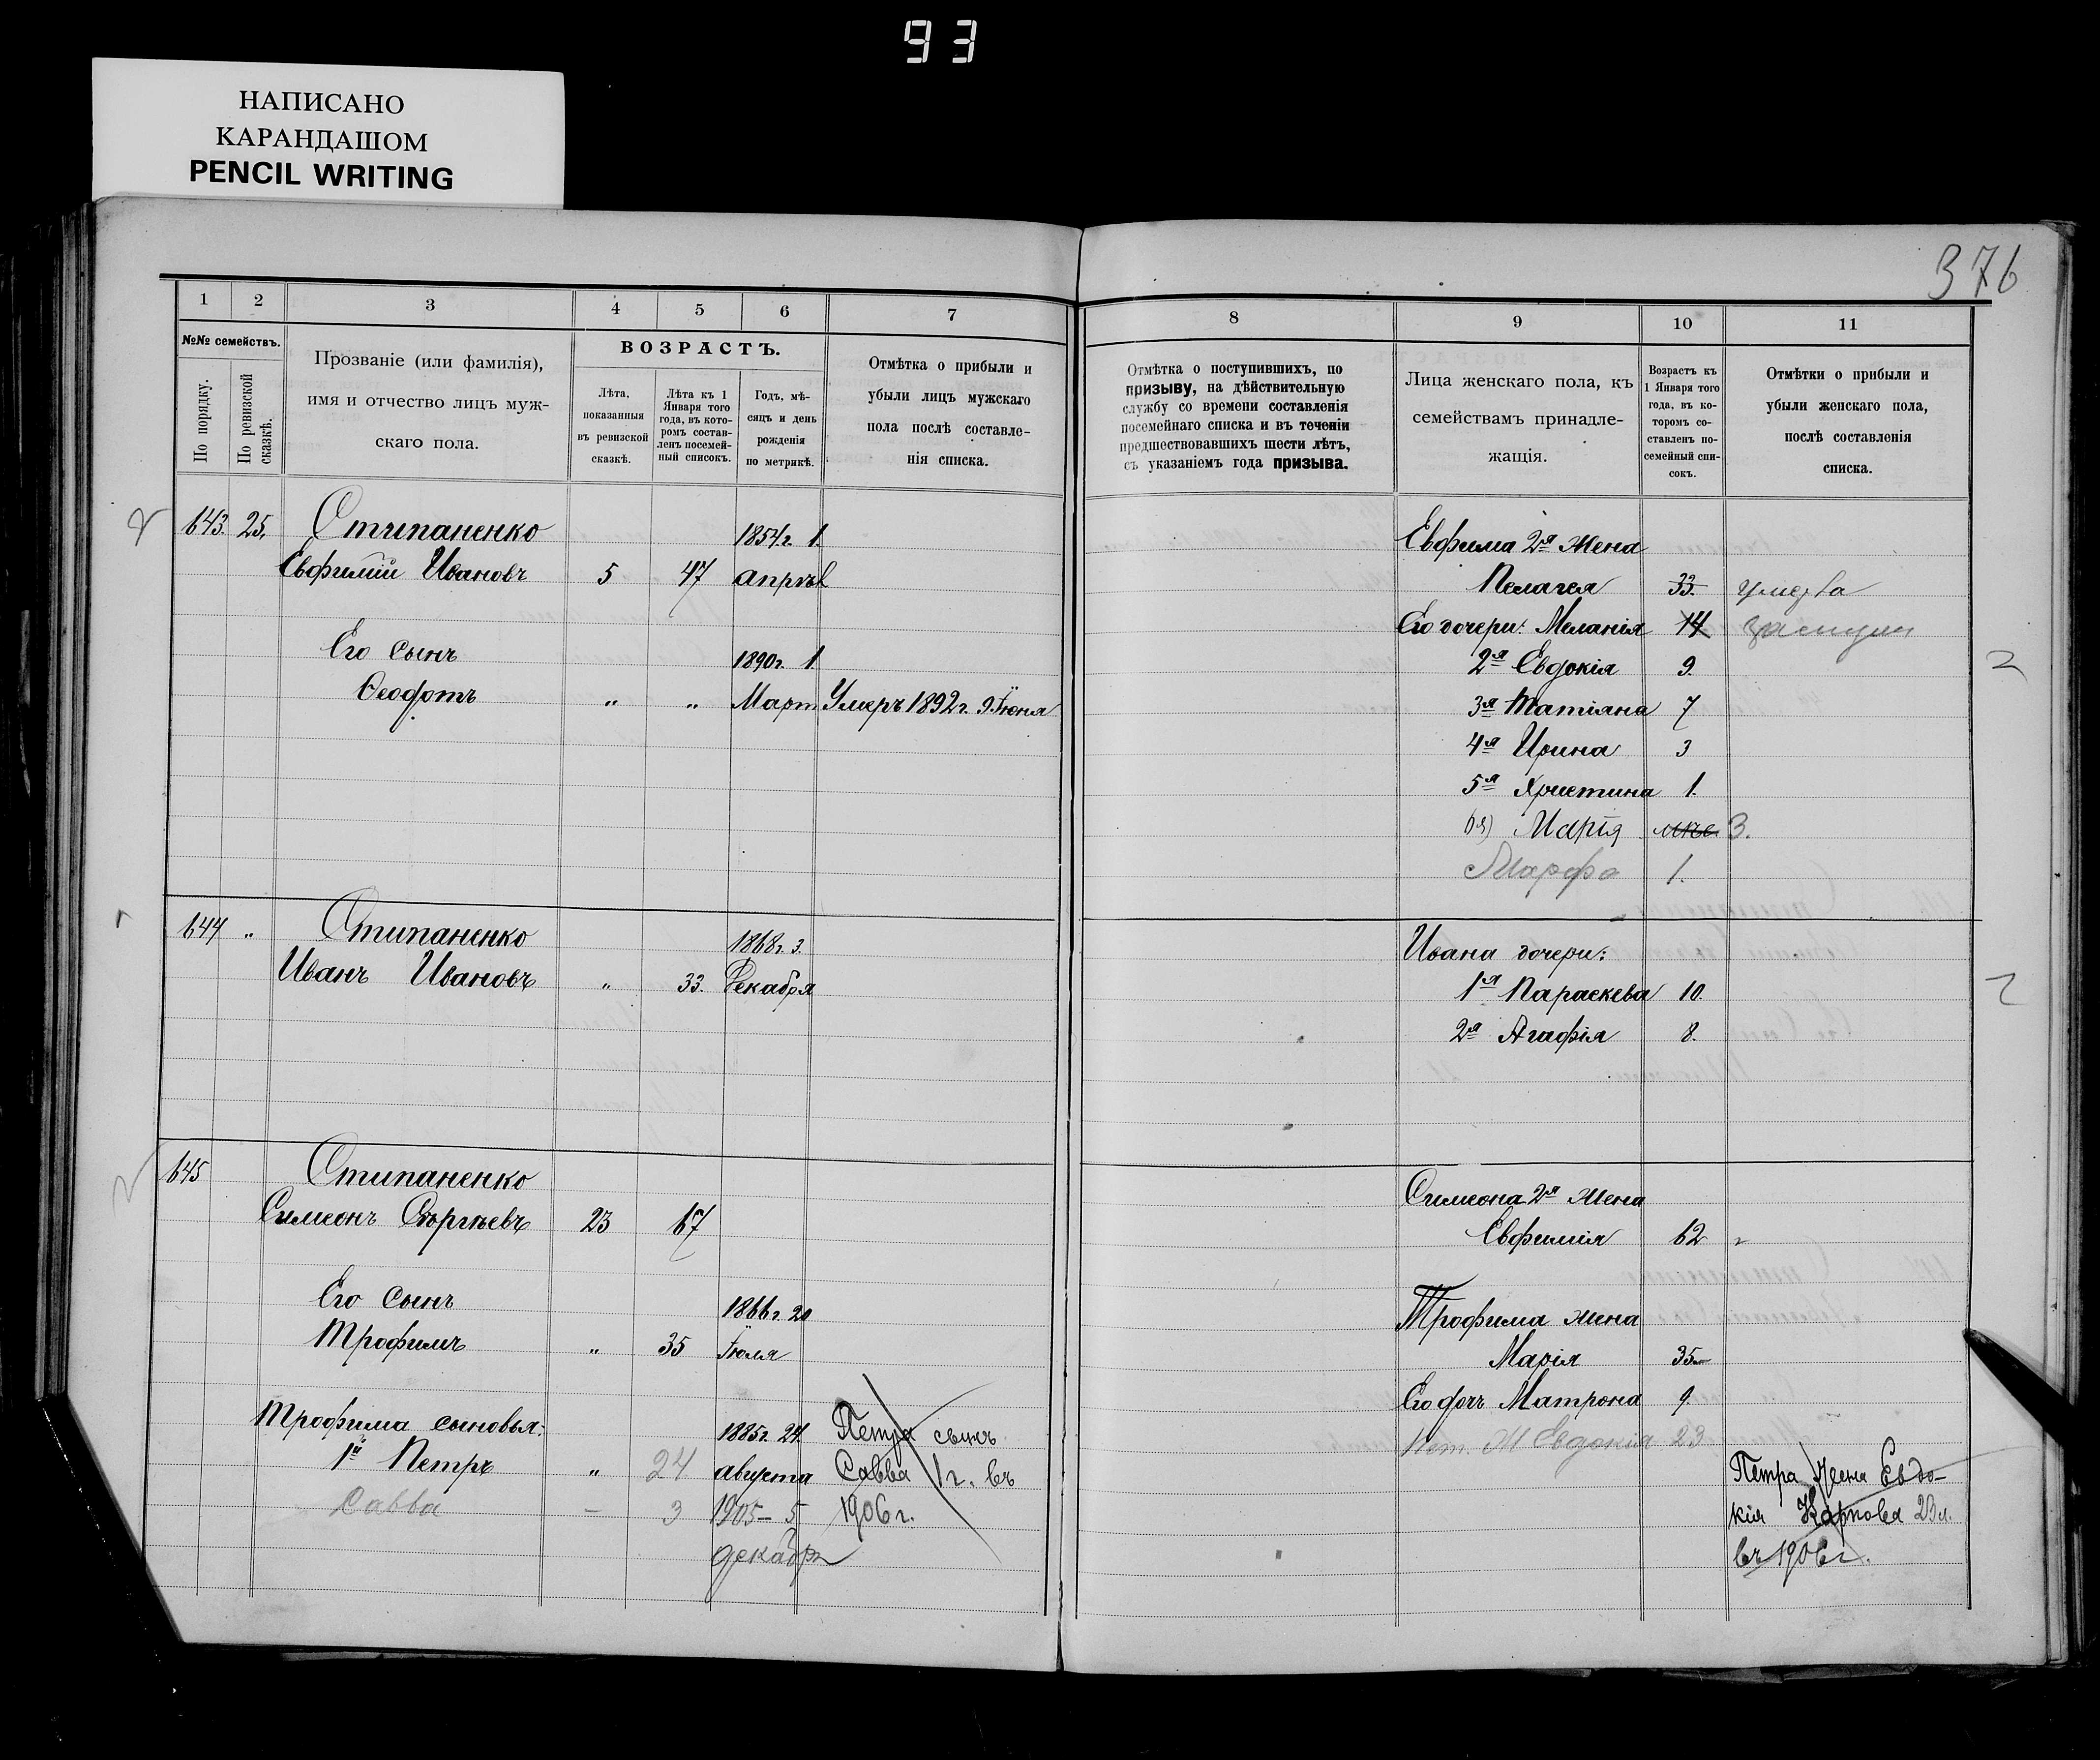 93
НАПИСАНО
КАРАНДАШОМ
PENCIL WRITING
376
1 2 3 4 5 6 7
№№ семействъ.
По порядку.
По ревизской сказкѣ.
Прозваніе (или фамилія),
имя и отчество лицъ муж-
скаго пола.
ВОЗРАСТЪ.
Лѣта,
показанныя
въ ревизской
сказкѣ.
Лѣта къ 1
Января того
года, въ кото-
ромъ состав-
ленъ посемей-
ный списокъ.
Годъ, мѣ-
сяцъ и день
рожденія
по метрикѣ.
Отмѣтка о прибыли и
убыли лицъ мужскаго
пола послѣ составле-
нія списка.
8 9 10 11
Отмѣтка о поступившихъ, по
призыву, на дѣйствительную
службу со времени составленія
посемейнаго списка и въ теченіи
предшествовавшихъ шести лѣтъ,
съ указаніемъ года призыва.
Лица женскаго пола, къ
семействамъ принадле-
жащія.
Возрастъ къ
1 Января того
года, въ ко-
торомъ со-
ставленъ по-
семейный спи-
сокъ.
Отмѣтки о прибыли и
убыли женскаго пола,
послѣ составленія
списка.
643. 25. Стипаненко 1854 г. 1.
Евфимій Ивановъ 5 47 апрѣл
Его сынъ 1890 г. 1
Ѳеофотъ " " Март Умеръ 1892 г. 9 Іюня
Евфима 2я жена
Пелагея 33. умерла
Его дочери: Меланія 14
2я Евдокія 9.
3я Татіяна 7
4я Ирина 3
5я Христина 1.
6я) Марія 3.
Марфа 1.
644 " Стипаненко 1868 г. 3.
Иванъ Ивановъ " 33. Декабря
Ивана дочери:
1я Параскева 10.
2я Агафія 8.
645 Стипаненко
Симеонъ Сергѣевъ 23 67
Его сынъ 1866 г. 20
Трофимъ " 35 Іюля
Трофима сыновья: 1885 г. 24.
1й Петръ " 24 августа
Савва – 3 1905 – 5
декабр
Петра сынъ
Савва 1 г. въ
1906 г.
Симеона 2я жена
Евфимія 62
Трофима жена
Марія 35
Его дочь Матрона 9.
Пет. Ж Евдокія 23
Петра жена Евдо-
кія Карпова 23 л.
въ 1906 г.